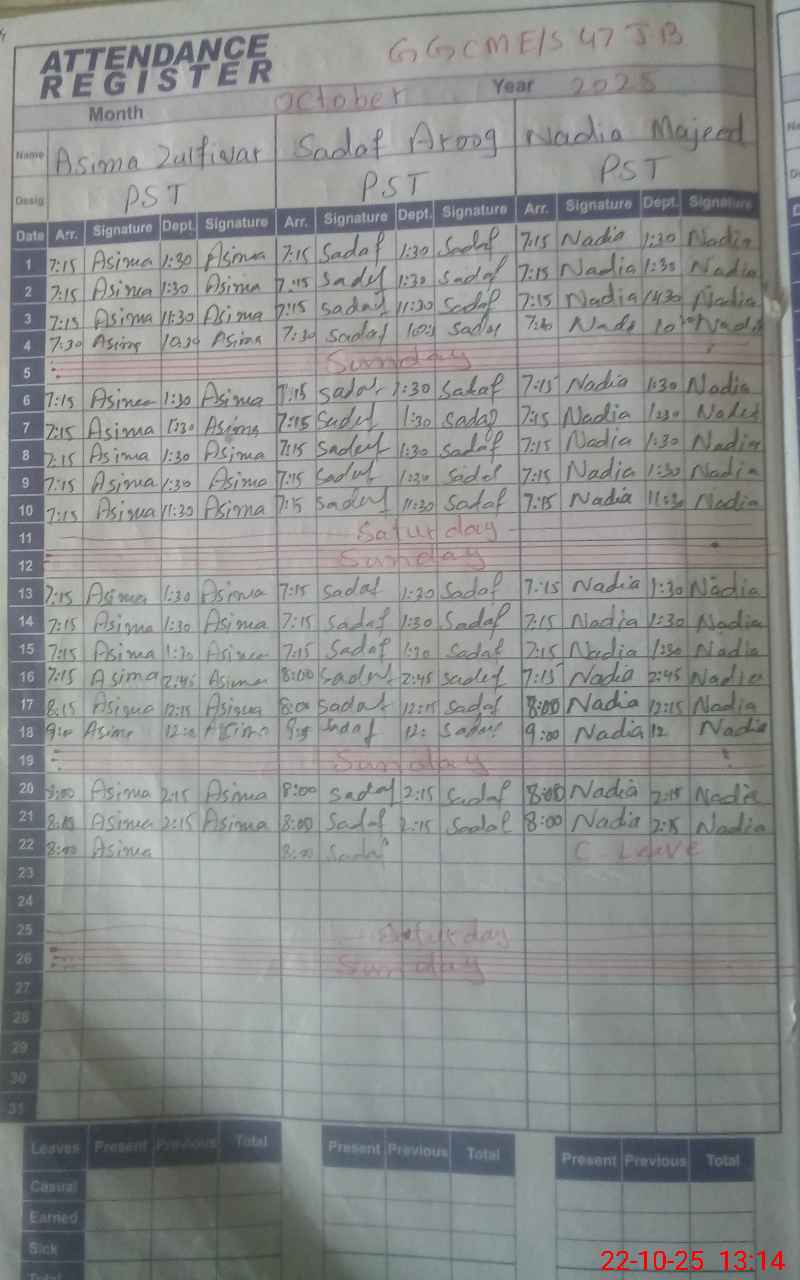 ATTENDANCE
REGISTER
GGCME/S 47 JB
Month October Year 2025
Name Asima Zulfiqar Sadaf Aroog Nadia Majeed
Desig PST PST PST
Date Arr. Signature Dept. Signature Arr. Signature Dept. Signature Arr. Signature Dept. Signature
1 7:15 Asima 1:30 Asima 7:15 Sadaf 1:30 Sadaf 7:15 Nadia 1:30 Nadia
2 7:15 Asima 1:30 Asima 7:15 Sadaf 1:30 Sadaf 7:15 Nadia 1:30 Nadia
3 7:15 Asima 11:30 Asima 7:15 Sadaf 11:30 Sadaf 7:15 Nadia 11:30 Nadia
4 7:30 Asima 10:30 Asima 7:30 Sadaf Sadaf Nadia
5 Sunday
6 7:15 Asima 1:30 Asima 7:15 Sadaf 1:30 Sadaf 7:15 Nadia 1:30 Nadia
7 7:15 Asima 1:30 Asima 7:15 Sadaf 1:30 Sadaf 7:15 Nadia 1:30 Nadia
8 7:15 Asima 1:30 Asima 7:15 Sadaf 1:30 Sadaf 7:15 Nadia 1:30 Nadia
9 7:15 Asima 1:30 Asima 7:15 Sadaf 1:30 Sadaf 7:15 Nadia 1:30 Nadia
10 7:15 Asima 11:30 Asima 7:15 Sadaf 11:30 Sadaf 7:15 Nadia 11:30 Nadia
11 Saturday
12 Sunday
13 7:15 Asima 1:30 Asima 7:15 Sadaf 1:30 Sadaf 7:15 Nadia 1:30 Nadia
14 7:15 Asima 1:30 Asima 7:15 Sadaf 1:30 Sadaf 7:15 Nadia 1:30 Nadia
15 7:15 Asima 1:30 Asima 7:15 Sadaf 1:30 Sadaf 7:15 Nadia 1:30 Nadia
16 7:15 Asima 2:45 Asima 8:00 Sadaf 2:45 Sadaf 7:15 Nadia 2:45 Nadia
17 8:15 Asima 12:15 Asima 8:00 Sadaf 12:15 Sadaf 8:00 Nadia 12:15 Nadia
18 Asima Asima Sadaf 12: Sadaf 9:00 Nadia 12 Nadia
19 Sunday
20 8:00 Asima 2:15 Asima 8:00 Sadaf 2:15 Sadaf 8:00 Nadia 2:15 Nadia
21 Asima 2:15 Asima 8:00 Sadaf 2:15 Sadaf 8:00 Nadia 2:15 Nadia
22 8:00 Asima 8:00 Sadaf C-Leave
23
24
25 Saturday
26 Sunday
27
28
29
30
31
Leaves Present Previous Total Present Previous Total Present Previous Total
Casual
Earned
Sick
Total
22-10-25 13:14